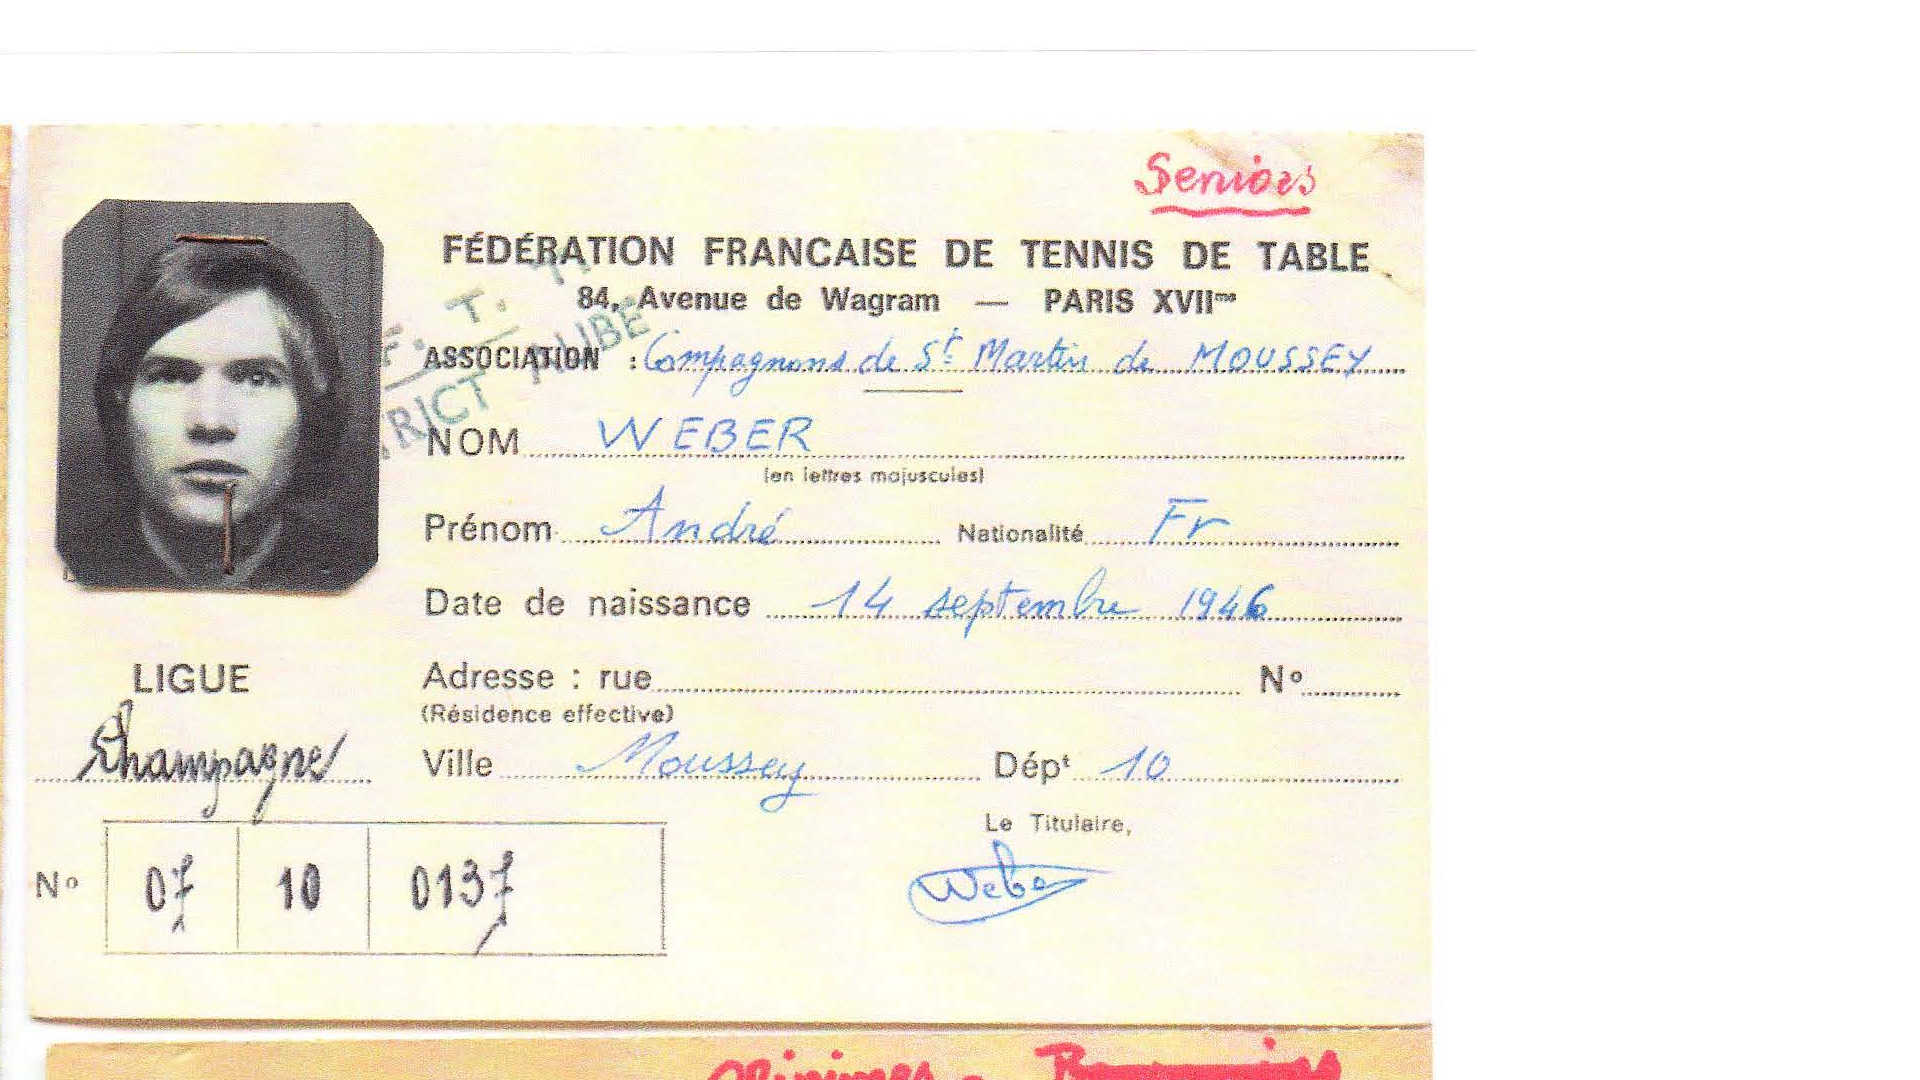 Seniors
FÉDÉRATION FRANCAISE DE TENNIS DE TABLE
84, Avenue de Wagram — PARIS XVIIme
F. F. T. T.
DISTRICT AUBE
ASSOCIATION : Compagnons de St Martin de MOUSSEY
NOM WEBER
(en lettres majuscules)
Prénom André Nationalité Fr
Date de naissance 14 septembre 1946
LIGUE
Champagne
Adresse : rue N°
(Résidence effective)
Ville Moussey Dépt 10
Le Titulaire,
Weber
N° 07 10 0137
Minimes -